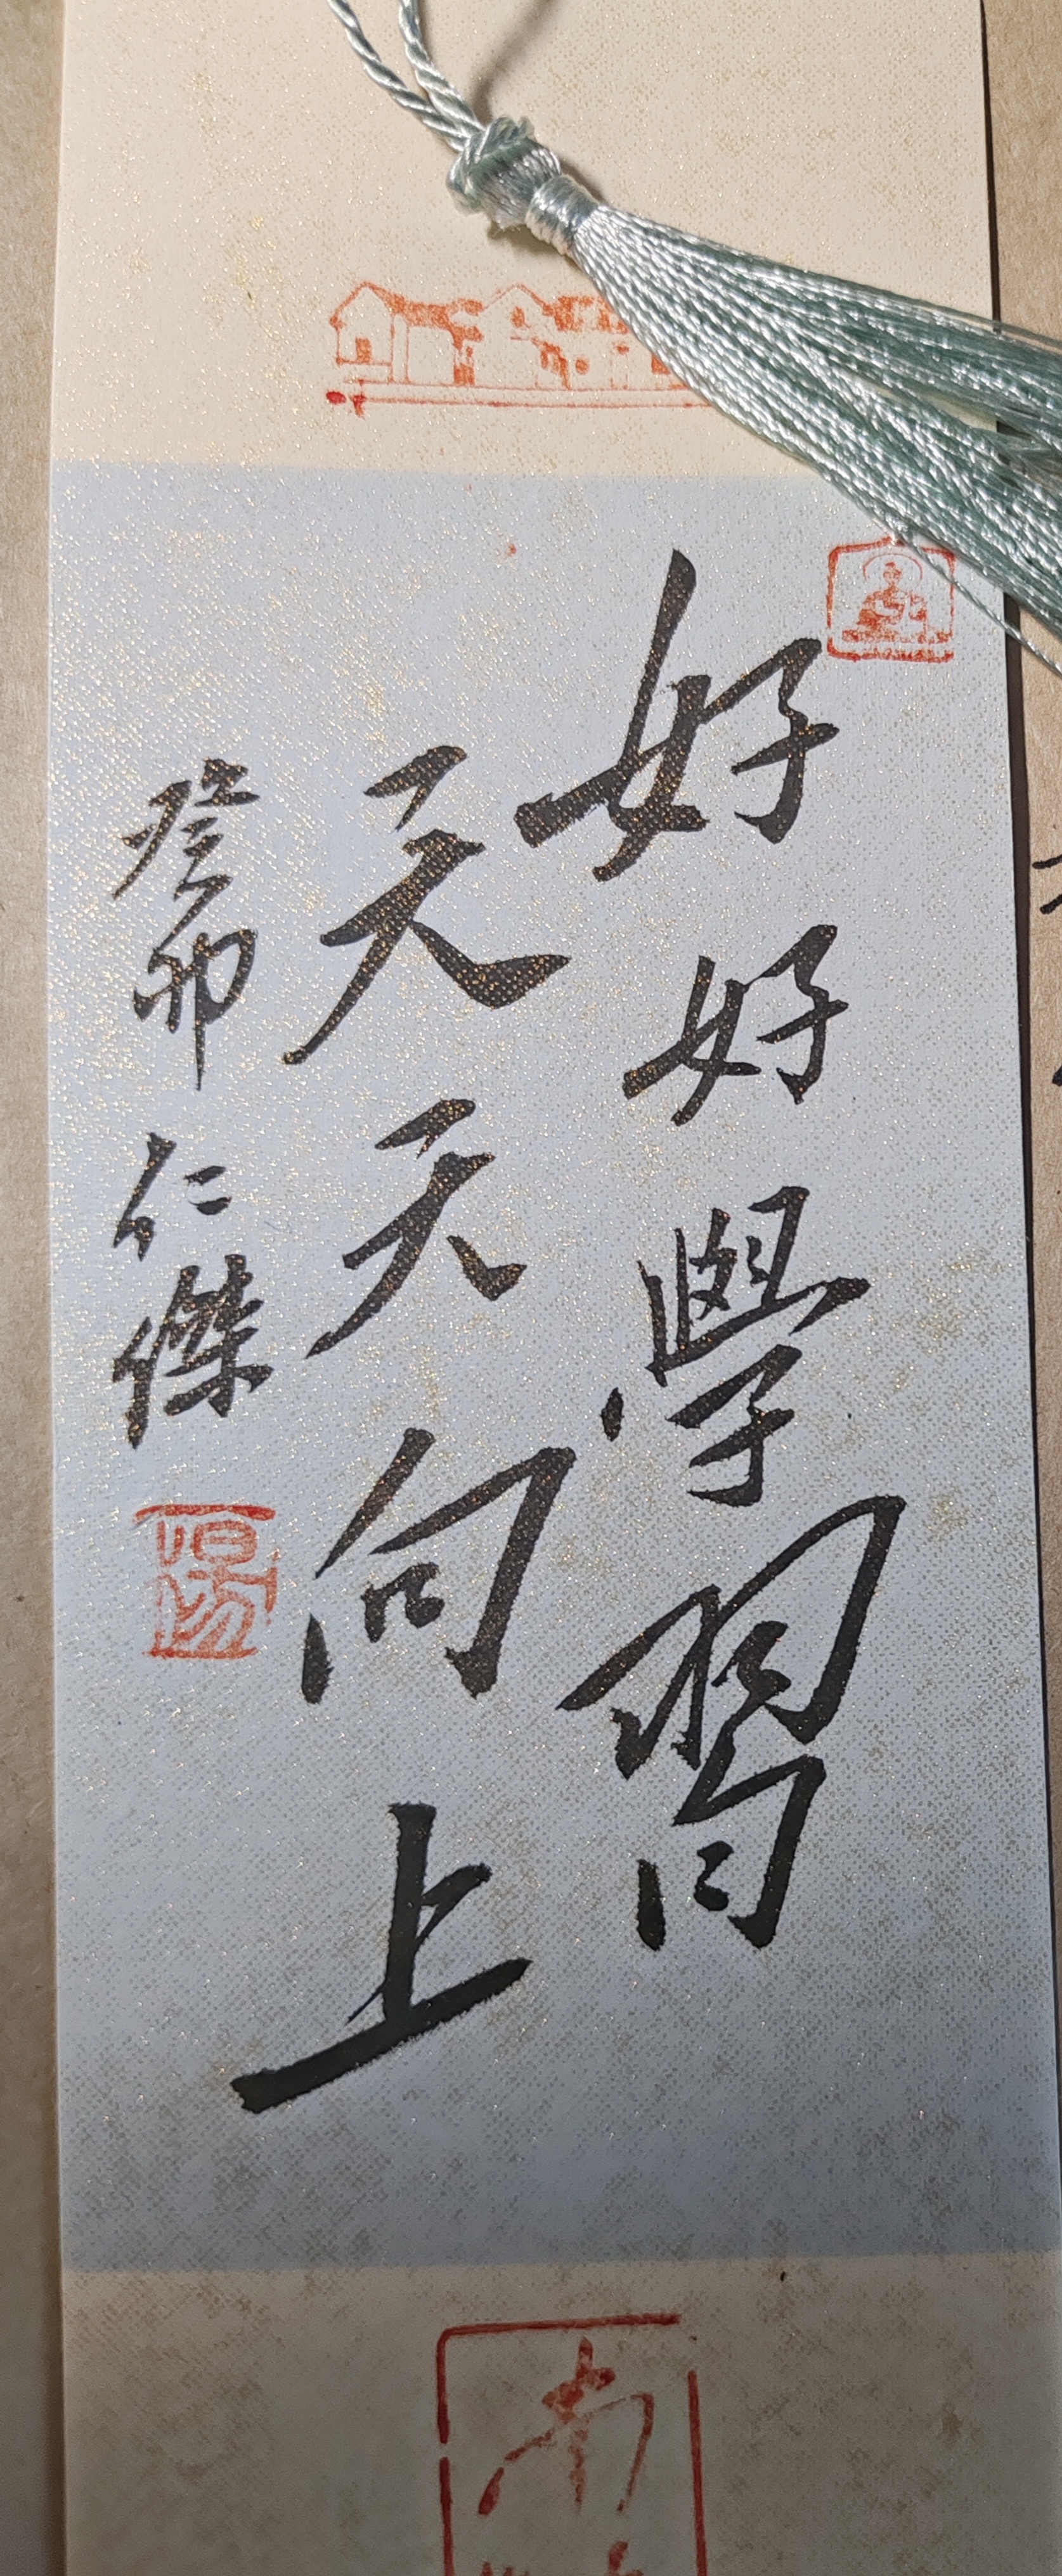 好好學習
天天向上
癸卯 仁傑
南